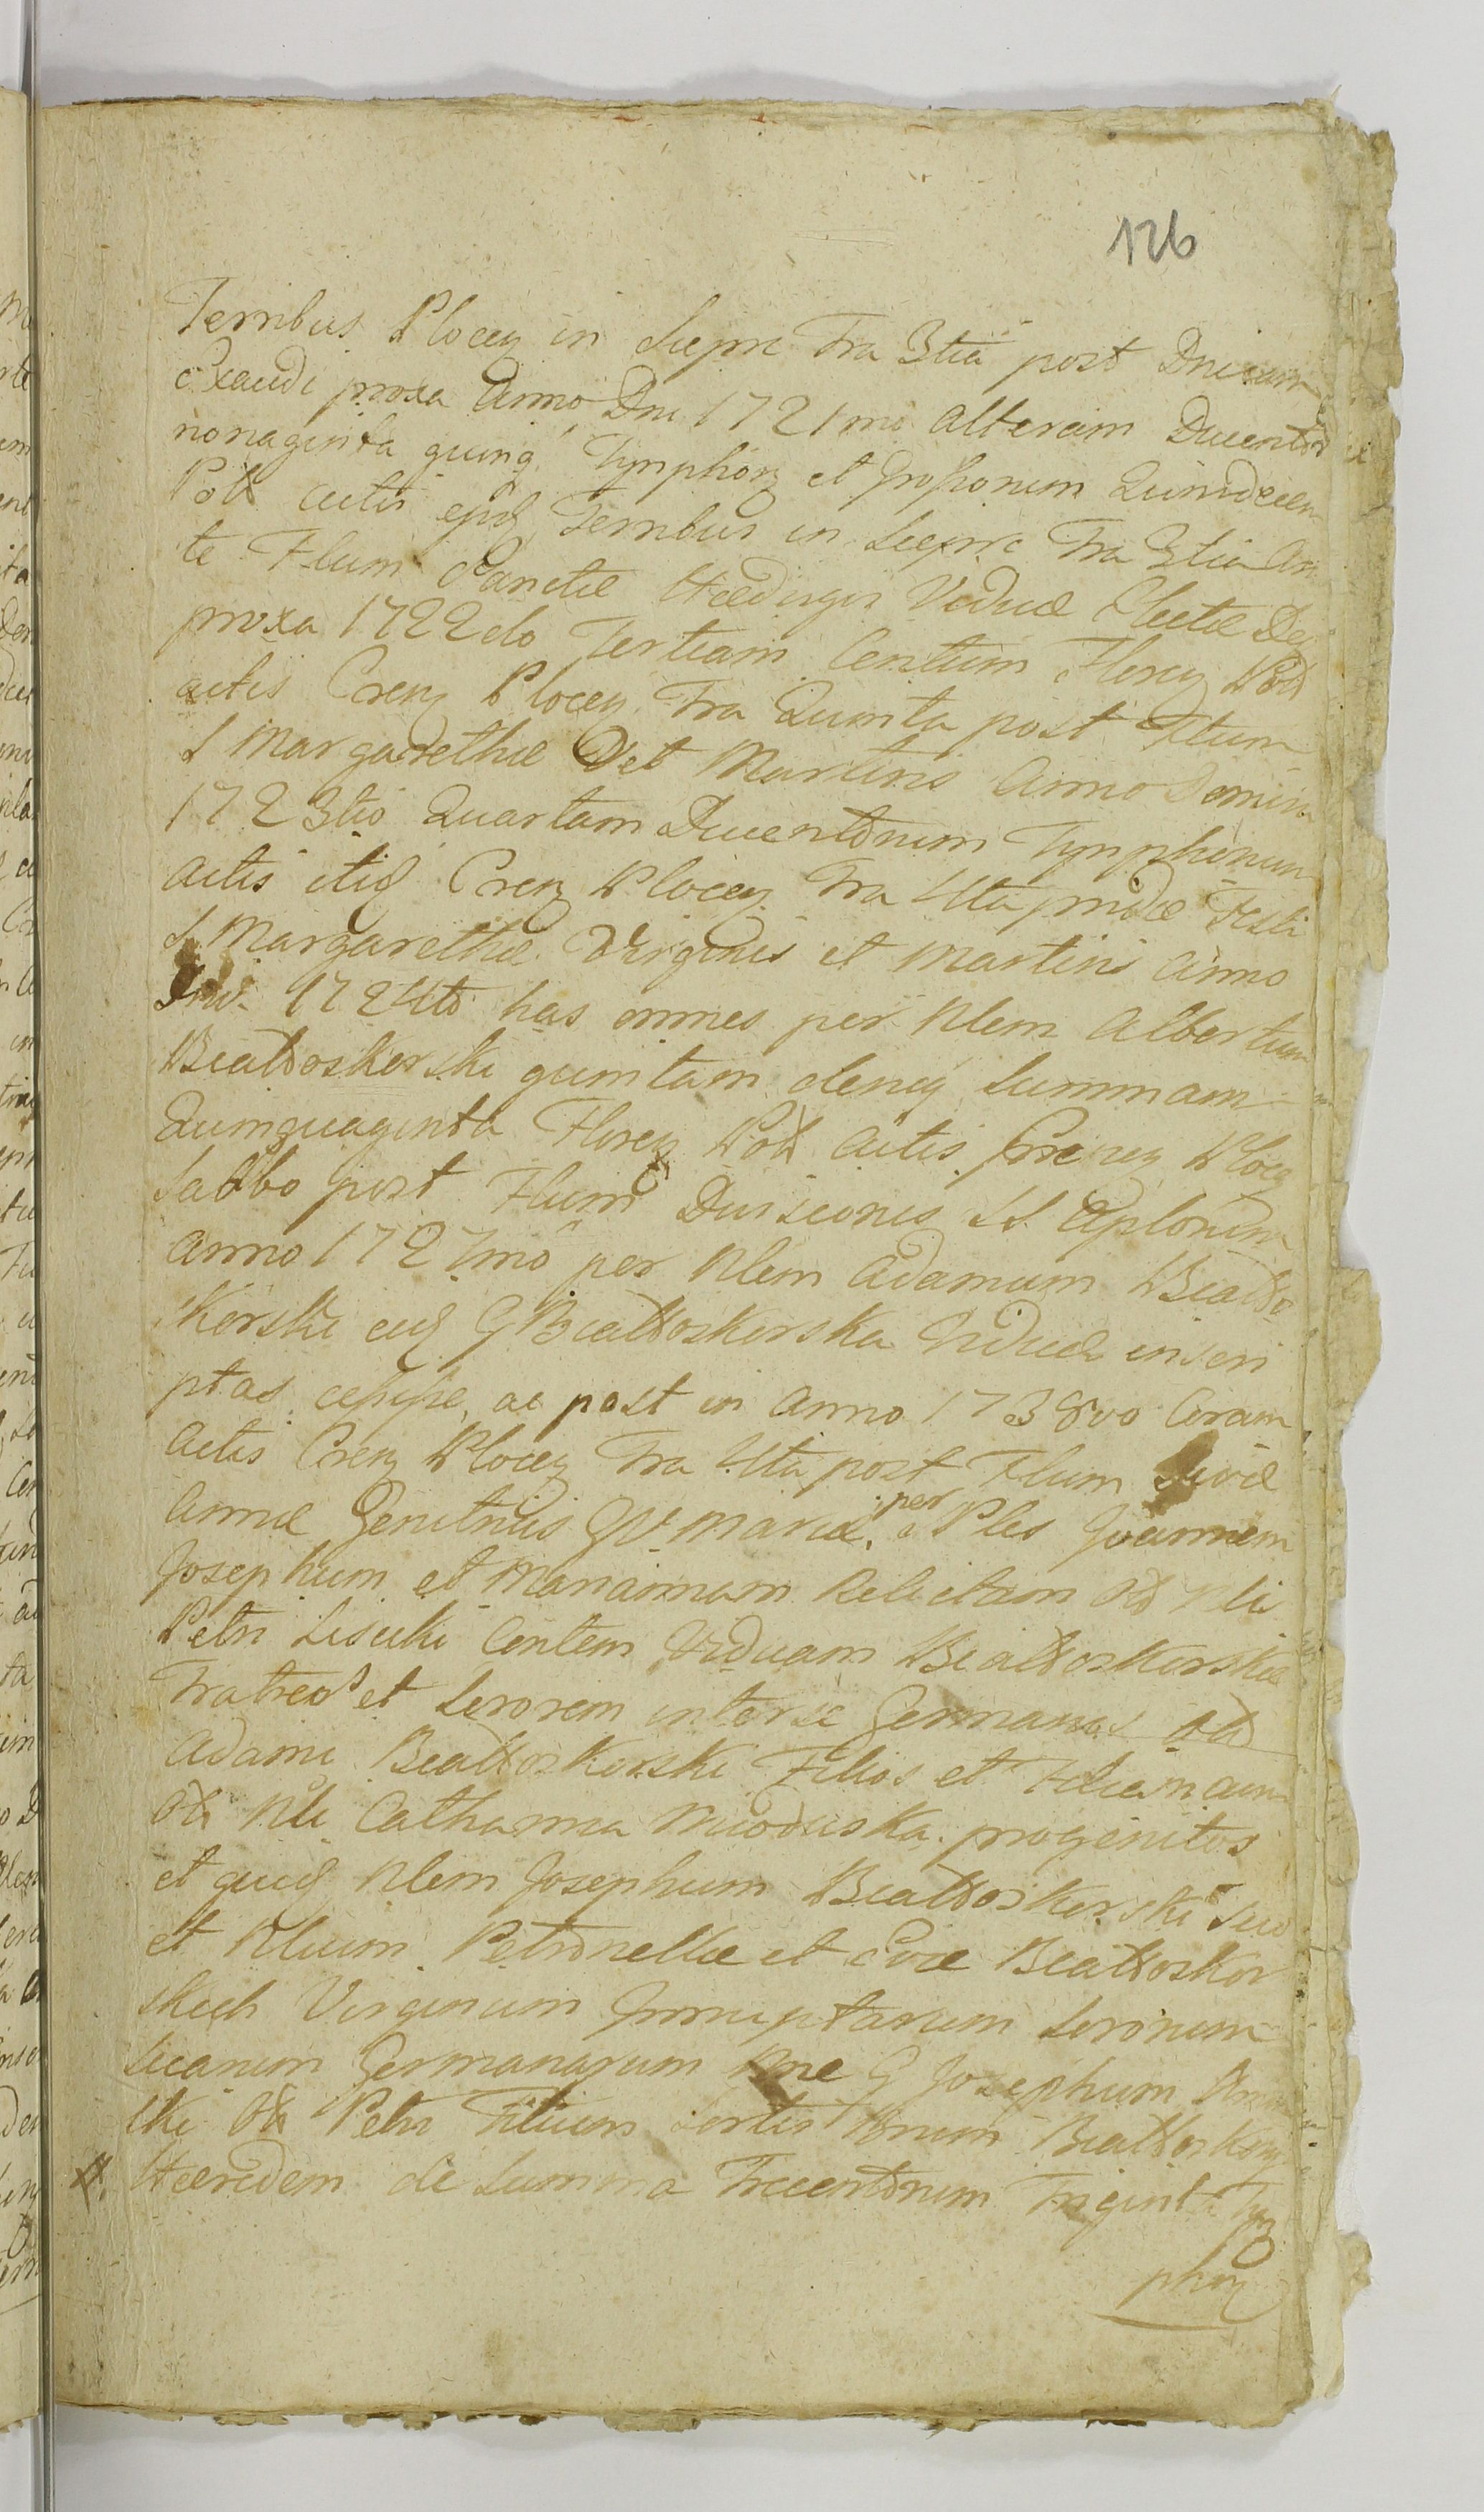 126
Terribus Plocen in Siepre Fra 3tia post Dnicam
Exaudi proxa Anno Dni 1721mo alteram Ducentor
nonaginta quinq Tymphorz et Grossorum Quindecim
Pol actis ejusd Terribus in Siepre Fra 3tia An
te Ftum Sanctæ Hædvigis Viduæ Electæ
proxa 1722do Tertiam Centum Florenz Pol
actis Crenz Plocen Fra Quinta post Ftum
S Margarethæ V et Martiris Anno Domini
1723tio Quartam Ducentorum Tymphorum
actis itid Crenz Plocen Fra 4ta pridie Festi
S Margarethæ Virginis et Martiris Anno
Dni 1724to has omnes per Nlem Albertum
Białoskorski quintam deniq Summam
Quinquaginta Florenz Pol actis Plocen
Sabbo post Ftum Divisionis SS Aplorum
Anno 1727mo per Nlem Adamum Biało
skorski eid G Białoskorska Viduæ inscri
ptas cepisse, ac post in Anno 1738vo Coram
actis Crenz Plocen Fra 4ta post Ftum Divæ
Annæ Genitricis GV Mariæ, per Nles Joannem
Josephum et Mariannam Relictam Od Nli
Petri Lisicki Contem Viduam Białoskorskie
Fratres et Sororem inter se Germanos Od
Adami Białoskorski Filios et Filiam cum
Od Nli Catharina Mioduska progenitos
et quid Nlem Josephum Białoskorski suo
et Nlium Petronellæ et Evæ Białoskor
skich Virginum Innuptarum Sororum
suarum Germanarum nne G Josephum
ski Od Petri Filium Sortis Bnrum Białoskory
Hæredem de Summa Trecentorum Triginta Tym
phorz